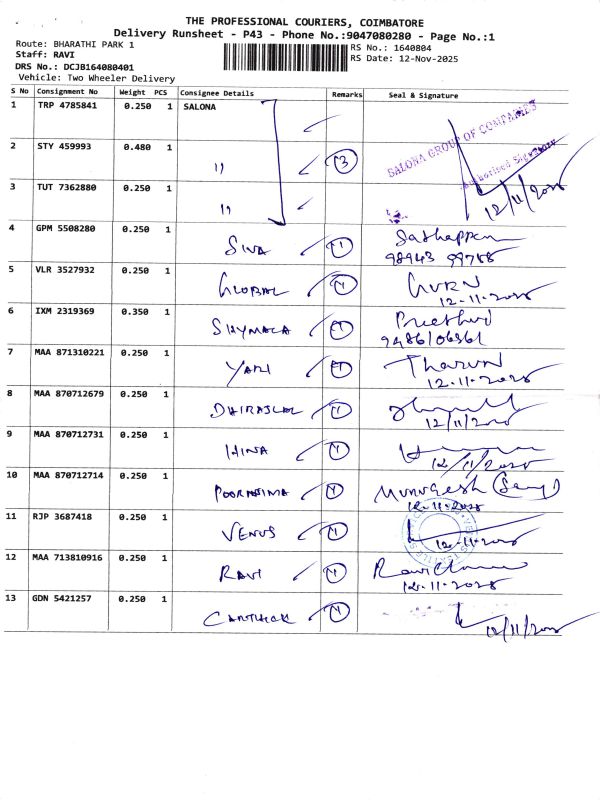 THE PROFESSIONAL COURIERS, COIMBATORE
Delivery Runsheet - P43 - Phone No.:9047080280 - Page No.:1
Route: BHARATHI PARK 1 RS No.: 1640804
Staff: RAVI RS Date: 12-Nov-2025
DRS No.: DCJB164080401
Vehicle: Two Wheeler Delivery
S No Consignment No Weight PCS Consignee Details Remarks Seal & Signature
1 TRP 4785841 0.250 1 SALONA
SALONA GROUP OF COMPANIES
2 STY 459993 0.480 1 " 3
Authorised Signatory
3 TUT 7362880 0.250 1 " 12/11/2025
4 GPM 5508280 0.250 1
SIVA 1 Sathappan
98943 99788
5 VLR 3527932 0.250 1
GLOBAL 1 GURN
12-11-2025
6 IXM 2319369 0.350 1
SHYMALA 1
7 MAA 871310221 0.250 1
YARI 1 Tharun
12-11-2025
8 MAA 870712679 0.250 1
DHIRAJLAL 1
12/11/2025
9 MAA 870712731 0.250 1
HINA 1
12/11/2025
10 MAA 870712714 0.250 1
POORNIMA 1 Murugesh
12-11-2025
11 RJP 3687418 0.250 1
VENUS 1 12-11-2025
12 MAA 713810916 0.250 1
RAVI 1
12-11-2025
13 GDN 5421257 0.250 1
CARTHICK 1 12/11/2025